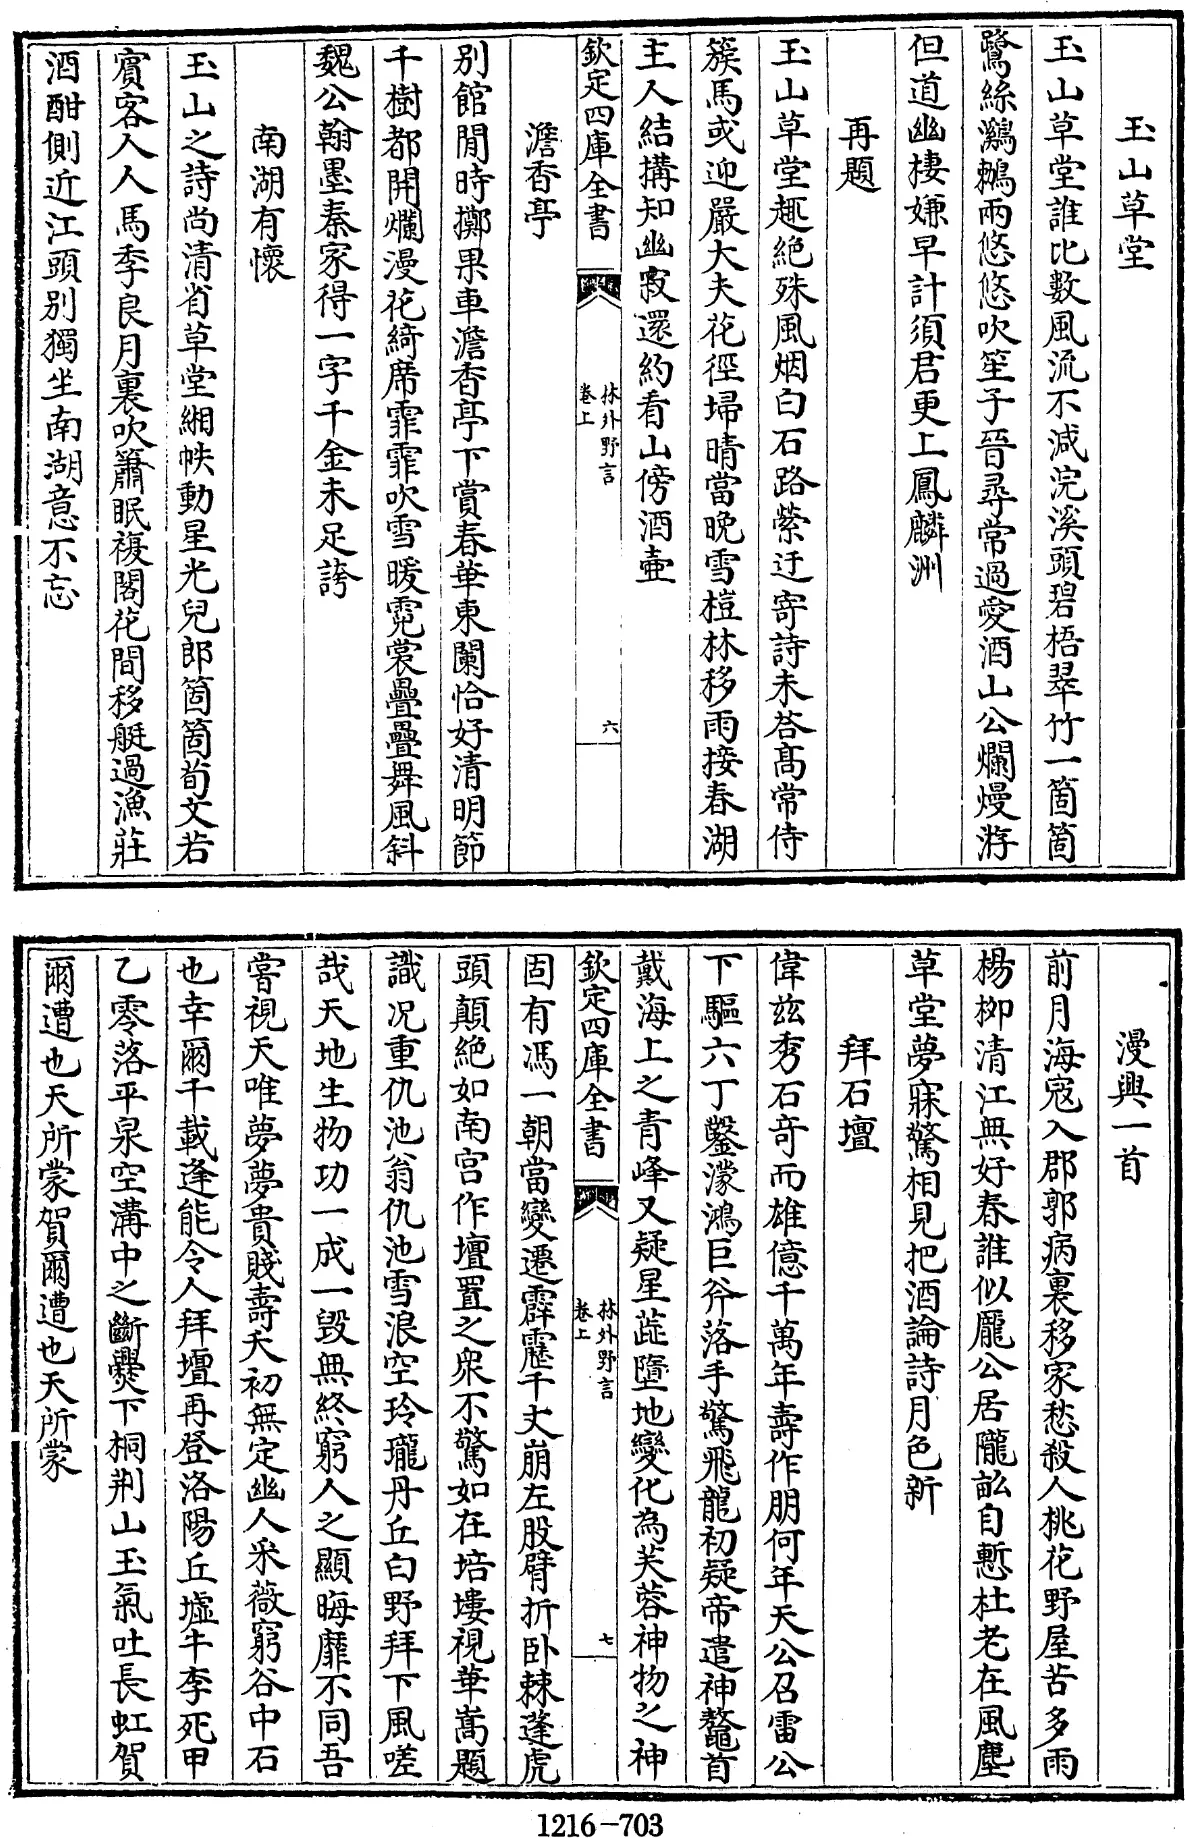 玉山草堂
玉山草堂誰比數風流不減浣溪頭碧梧翠竹一箇箇
鷺絲鸂鶒兩悠悠吹笙子晉尋常過愛酒山公爛熳游
但道幽棲嫌早計須君更上鳳麟洲
再題
玉山草堂趣絶殊風烟白石路縈迂寄詩未答髙常侍
簇馬或迎嚴大夫花徑埽晴當晚雪榿林移雨接春湖
主人結搆知幽寂還約看山傍酒壺
欽定四庫全書
林外野言
卷上
六
澹香亭
別館閒時擲果車澹香亭下賞春華東闌恰好清明節
千樹都開爛漫花綺席霏霏吹雪暖霓裳疊疊舞風斜
魏公翰墨秦家得一字千金未足誇
南湖有懷
玉山之詩尚清省草堂緗帙動星光兒郎箇箇荀文若
賓客人人馬季良月裏吹簫眠複閣花間移艇過漁莊
酒酣側近江頭別獨坐南湖意不忘
漫興一首
前月海寇入郡郭病裏移家愁殺人桃花野屋苦多雨
楊柳清江無好春誰似龐公居隴畝自慙杜老在風塵
草堂夢寐驚相見把酒論詩月色新
拜石壇
偉兹秀石竒而雄億千萬年壽作朋何年天公召雷公
下驅六丁鑿濛鴻巨斧落手驚飛龍初疑帝遣神鼇首
戴海上之青峰又疑星茈墮地變化為芙蓉神物之神
欽定四庫全書
林外野言
卷上
七
固有馮一朝當變遷霹靂千丈崩左股臂折卧棘蓬虎
頭顛絶如南宫作壇置之衆不驚如在培塿視華嵩題
識况重仇池翁仇池雪浪空玲瓏丹丘白野拜下風嗟
哉天地生物功一成一毁無終窮人之顯晦靡不同吾
嘗視天唯夢夢貴賤壽夭初無定幽人采薇窮谷中石
也幸爾千載逢能令人拜壇再登洛陽丘墟牛李死甲
乙零落平泉空溝中之斷㸑下桐荆山玉氣吐長虹賀
爾遭也天所蒙賀爾遭也天所蒙
1216-703